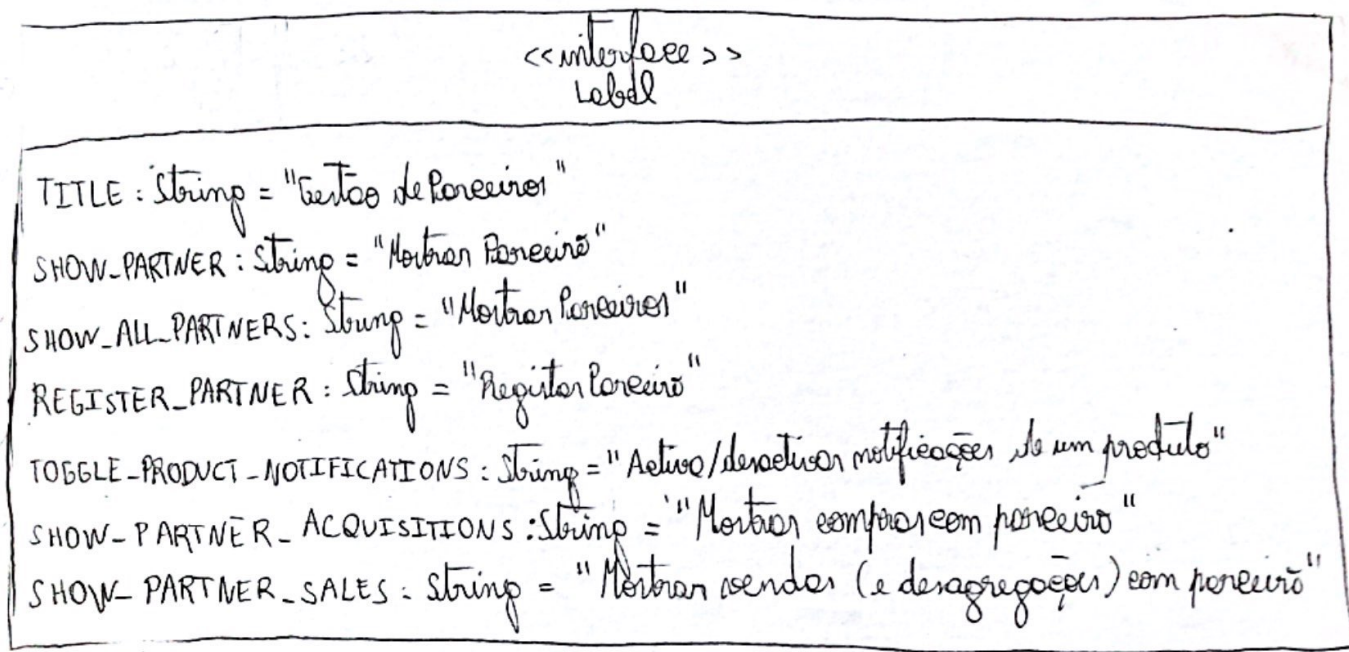 <<interface>>
Label
TITLE : String = "Gestão de Parceiros"
SHOW_PARTNER : String = "Mostrar Parceiro"
SHOW_ALL_PARTNERS : String = "Mostrar Parceiros"
REGISTER_PARTNER : String = "Registar Parceiro"
TOGGLE_PRODUCT_NOTIFICATIONS : String = "Activa/desactivar notificações de um produto"
SHOW_PARTNER_ACQUISITIONS : String = "Mostrar compras com parceiro"
SHOW_PARTNER_SALES : String = "Mostrar vendas (e desagregações) com parceiro"